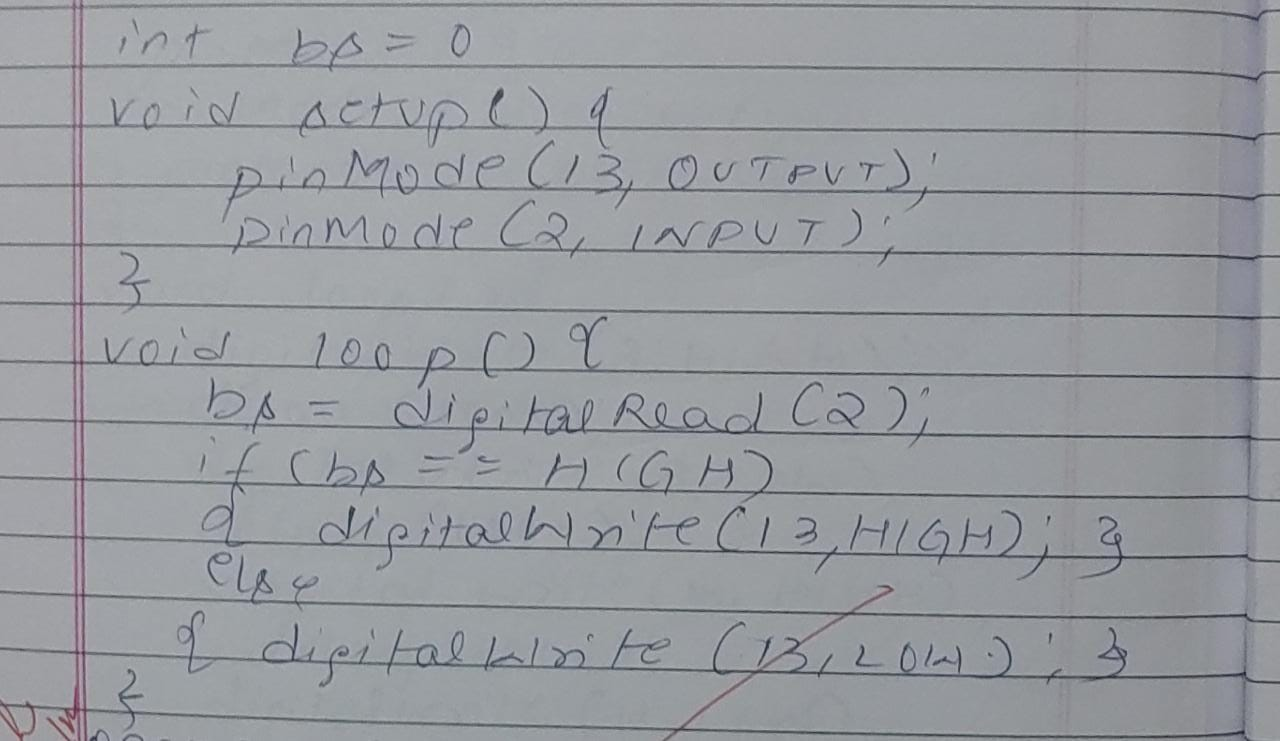 int bs = 0
void setup() {
pinMode (13, OUTPUT);
pinMode (2, INPUT);
}
void loop() {
bs = digitalRead (2);
if (bs == HIGH)
{ digitalWrite (13, HIGH); }
else
{ digitalWrite (13, LOW); }
}